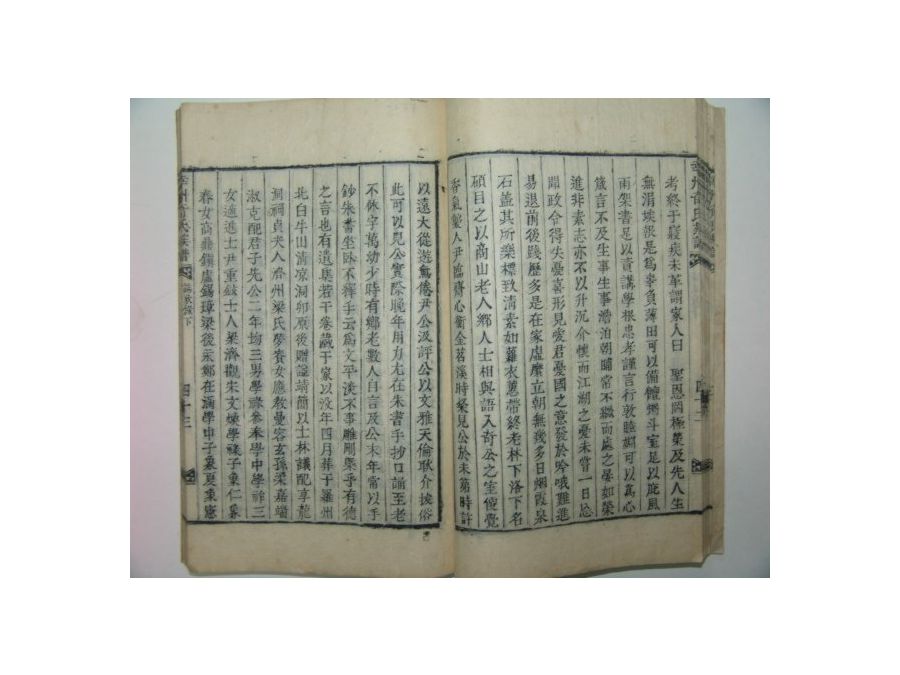 考終于寢疾未革謂家人曰 聖恩罔極榮及先人生
無涓埃報是爲辜負薄田可以備饘粥斗室足以庇風
雨架書足以資講學根忠孝謹言行敦睦婣可以爲心
箴言不及生事生事澹泊朝晡常不繼而處之晏如榮
進非素志亦不以升沉介懷而江湖之憂未嘗一日忘
聞政令得失憂喜形見愛君憂國之意發於吟哦難進
易退前後踐歷多是在家虛縻立朝無幾多日烟霞泉
石盡其所樂標致清素如蘿衣蕙帶終老林下洛下名
碩目之以商山老人鄕人士相與語入奇公之室便覺
香氣襲人尹臨齋心衡金茗溪時粲見公於未第時許
以遠大從遊焉倦尹公汲評公以文雅天倫耿介挨俗
此可以見公實際晚年用力尤在朱書手抄口誦至老
不休字萬幼少時有鄕老數人自言及公末年常以手
鈔朱書坐臥不釋手云爲文平淡不事雕刷槩乎有德
之言也有遺集若干卷藏于家以沒年四月葬于羅州
北白牛山清凉洞卯原後贈諡靖簡以士林議配享龍
洞祠貞夫人齊州梁氏夢賚女應敎曼容玄孫柔嘉端
淑克配君子先公二年均三男學祿參奉學中學祥三
女適進士尹重鉉士人梁濟觀朱文煉學祿子象仁象
春女高鼎鎭盧錫璋梁後泰鄭在涵學中子象夏象應
四十三